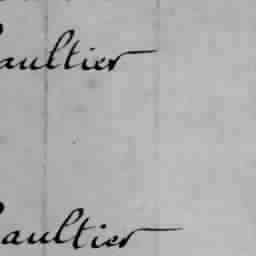 Gaultier
Gaultier